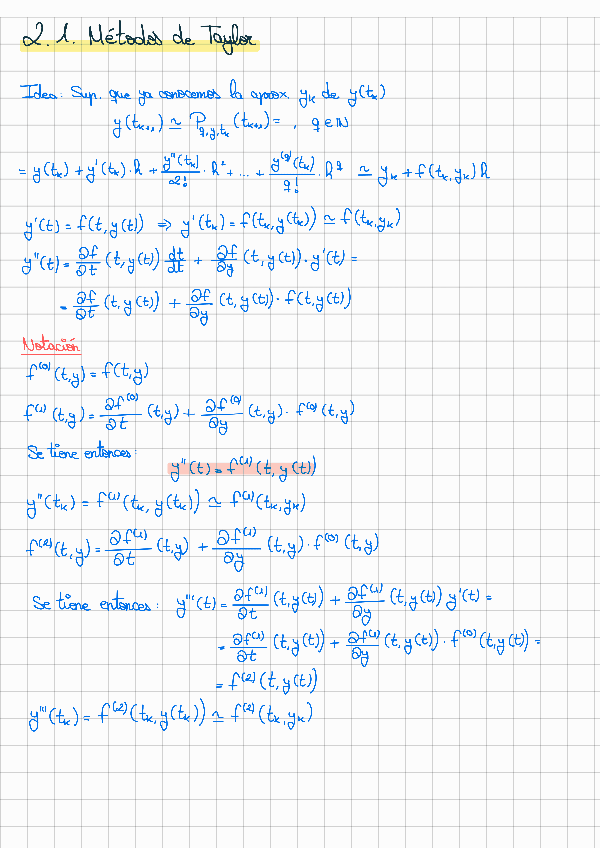 2.1. Métodos de Taylor
Idea: Sup. que ya conocemos la aprox. yₖ de y(tₖ)
y(tₖ₊₁) ≃ P_{q,y,tₖ}(tₖ₊₁) = , q ∈ ℕ
= y(tₖ) + y'(tₖ)·h + y''(tₖ)/2! · h² + ... + y^(q)(tₖ)/q! · h^q ≃ yₖ + f(tₖ,yₖ)h
y'(t) = f(t,y(t)) ⇒ y'(tₖ) = f(tₖ,y(tₖ)) ≃ f(tₖ,yₖ)
y''(t) = ∂f/∂t (t,y(t)) dt/dt + ∂f/∂y (t,y(t))·y'(t) =
= ∂f/∂t (t,y(t)) + ∂f/∂y (t,y(t))·f(t,y(t))
Notación
f^(0)(t,y) = f(t,y)
f^(1)(t,y) = ∂f^(0)/∂t (t,y) + ∂f^(0)/∂y (t,y)·f^(0)(t,y)
Se tiene entonces:
y''(t) = f^(1)(t,y(t))
y''(tₖ) = f^(1)(tₖ,y(tₖ)) ≃ f^(1)(tₖ,yₖ)
f^(2)(t,y) = ∂f^(1)/∂t (t,y) + ∂f^(1)/∂y (t,y)·f^(0)(t,y)
Se tiene entonces: y'''(t) = ∂f^(1)/∂t (t,y(t)) + ∂f^(1)/∂y (t,y(t)) y'(t) =
= ∂f^(1)/∂t (t,y(t)) + ∂f^(1)/∂y (t,y(t))·f^(0)(t,y(t)) =
= f^(2)(t,y(t))
y'''(tₖ) = f^(2)(tₖ,y(tₖ)) ≃ f^(2)(tₖ,yₖ)